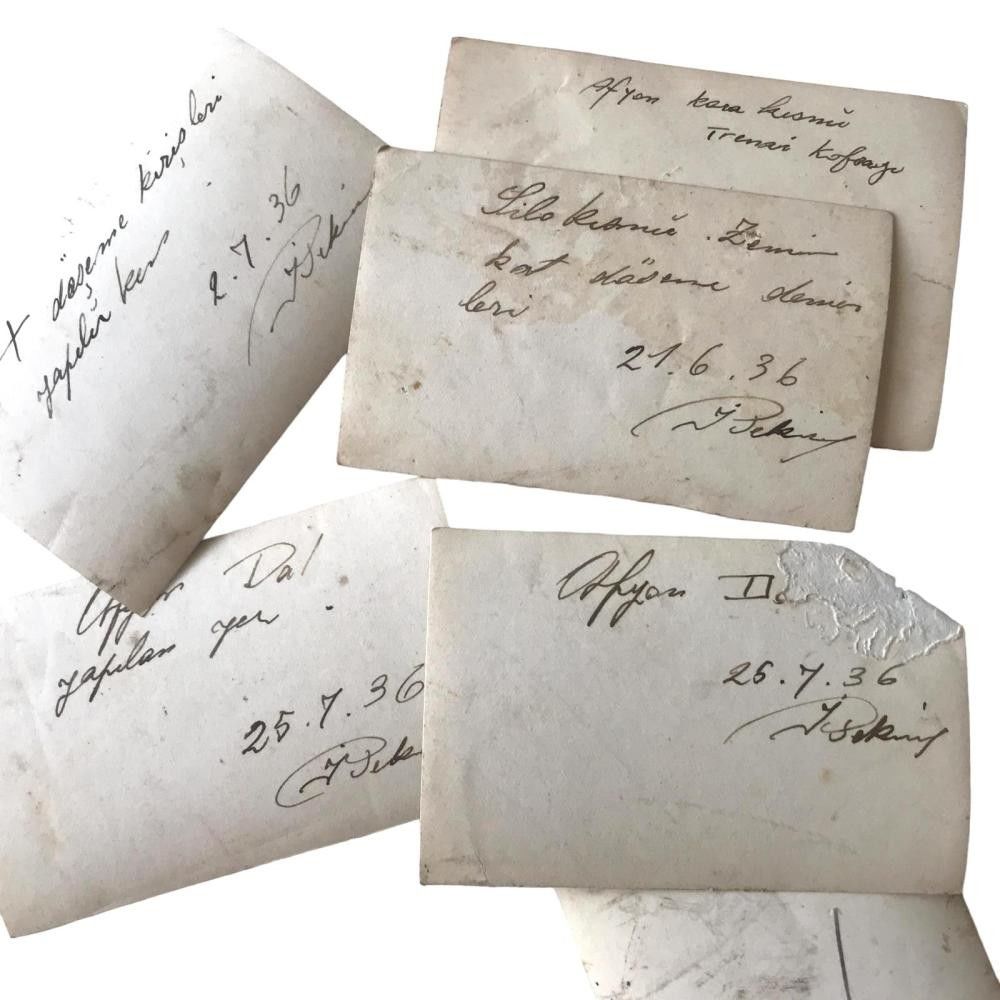 + döşeme kirişleri
yapılır ken
2.7.36
İ Pekin
Afyon kara kısmı
Silo kısmı. Zemin
kat döşeme demir
leri
21.6.36
İ Pekin
Afyon Da
yapılan yer.
25.7.36
İ Pek
Afyon D
25.7.36
İ Pekin